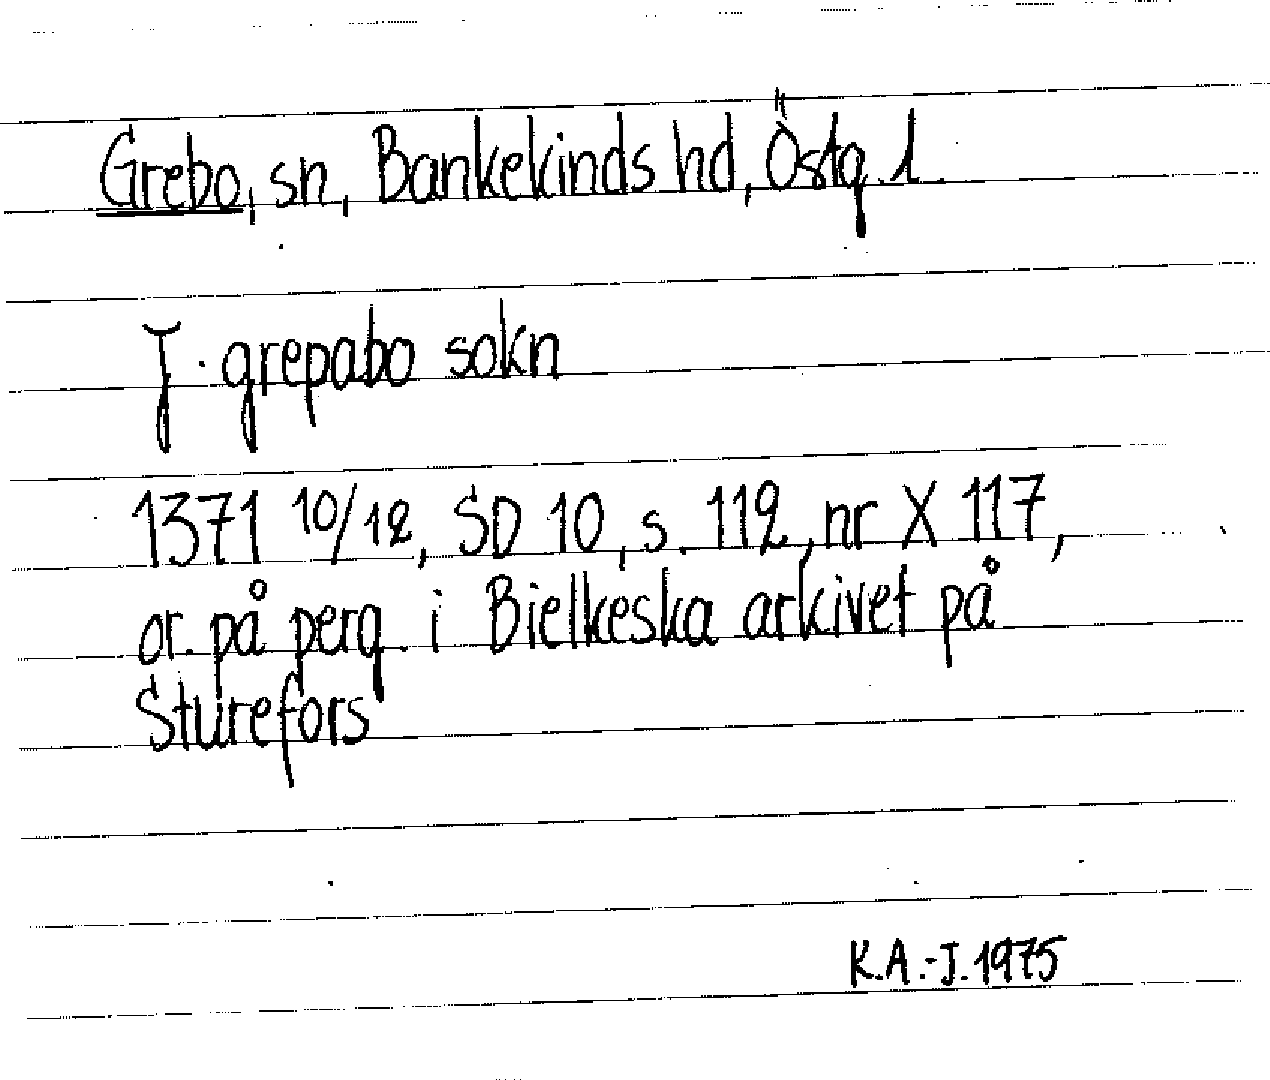 Grebo, sn, Bankekinds hd, Östg. l.
J. grepabo sokn
1371 10/12, SD 10, s. 112, nr X 117,
or. på perg. i Bielkeska arkivet på
Sturefors
K.A.-J. 1975